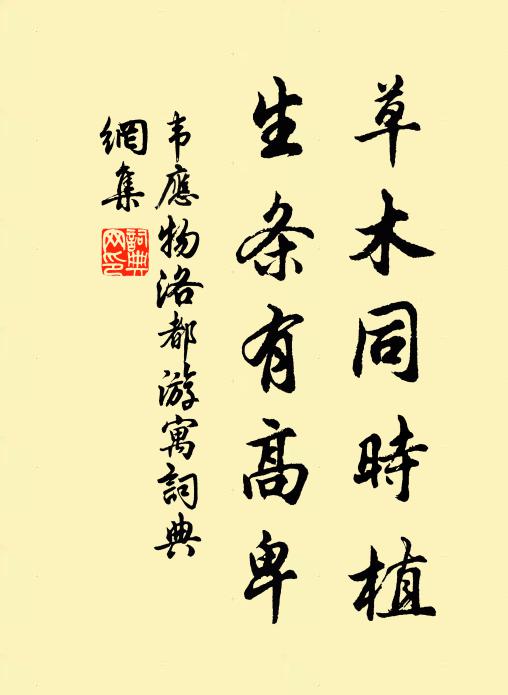 草木同時植
生条有高卑
韦應物洛都游寓詞典
網集
詞典
网印